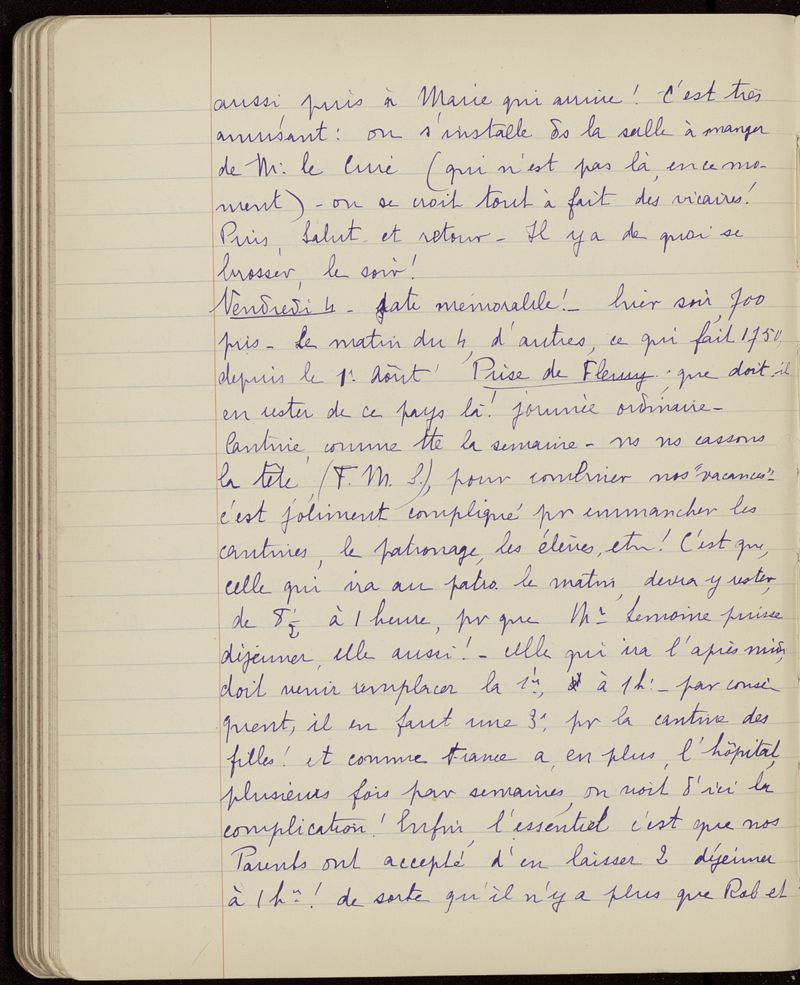 aussi puis à Marie qui arrive ! C'est très
amusant : on s'installe ds la salle à manger
de Mr. le Curé (qui n'est pas là, en ce mo-
ment) - on se croit tout à fait des vicaires !
Puis, Salut et retour - Il y a de quoi se
brosser, le soir !
Vendredi 4 - date mémorable ! - hier soir, 700
pris - Le matin du 4, d'autres, ce qui fait 1750,
depuis le 1r Août ! Prise de Fleury : que doit-il
en rester de ce pays là ! journée ordinaire -
Cantine, comme tte la semaine - ns ns cassons
la tête (F. M. S.), pour combiner nos "vacances" -
c'est joliment compliqué pr emmancher les
cantines, le patronage, les élèves, etc ! C'est que,
celle qui ira au patro. le matin, devra y rester,
de 8 1/2 à 1 heure, pr que Lemoine puisse
déjeuner, elle aussi ! - celle qui ira l'après midi,
doit venir remplacer la 1re, à 1h. - par consé-
quent, il en faut une 3e, pr la cantine des
filles ! et comme France a, en plus, l'hôpital,
plusieurs fois par semaines, on voit d'ici la
complication ! Enfin, l'essentiel c'est que nos
Parents ont accepté d'en laisser 2 déjeuner
à 1 hre ! de sorte qu'il n'y a plus que Rob et